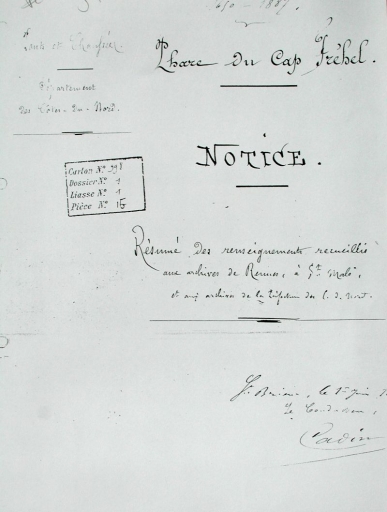 Ponts et Chaussées.
Département
des Côtes-du-Nord.
Phare du Cap Fréhel.
NOTICE.
Carton Nº
Dossier Nº 1
Liasse Nº 1
Pièce Nº 15
Résumé des renseignements recueillis
aux archives de Rennes, à St Malo,
et aux archives de la Préfecture des C. d. Nord.
St Brieuc, le
Le Conducteur,